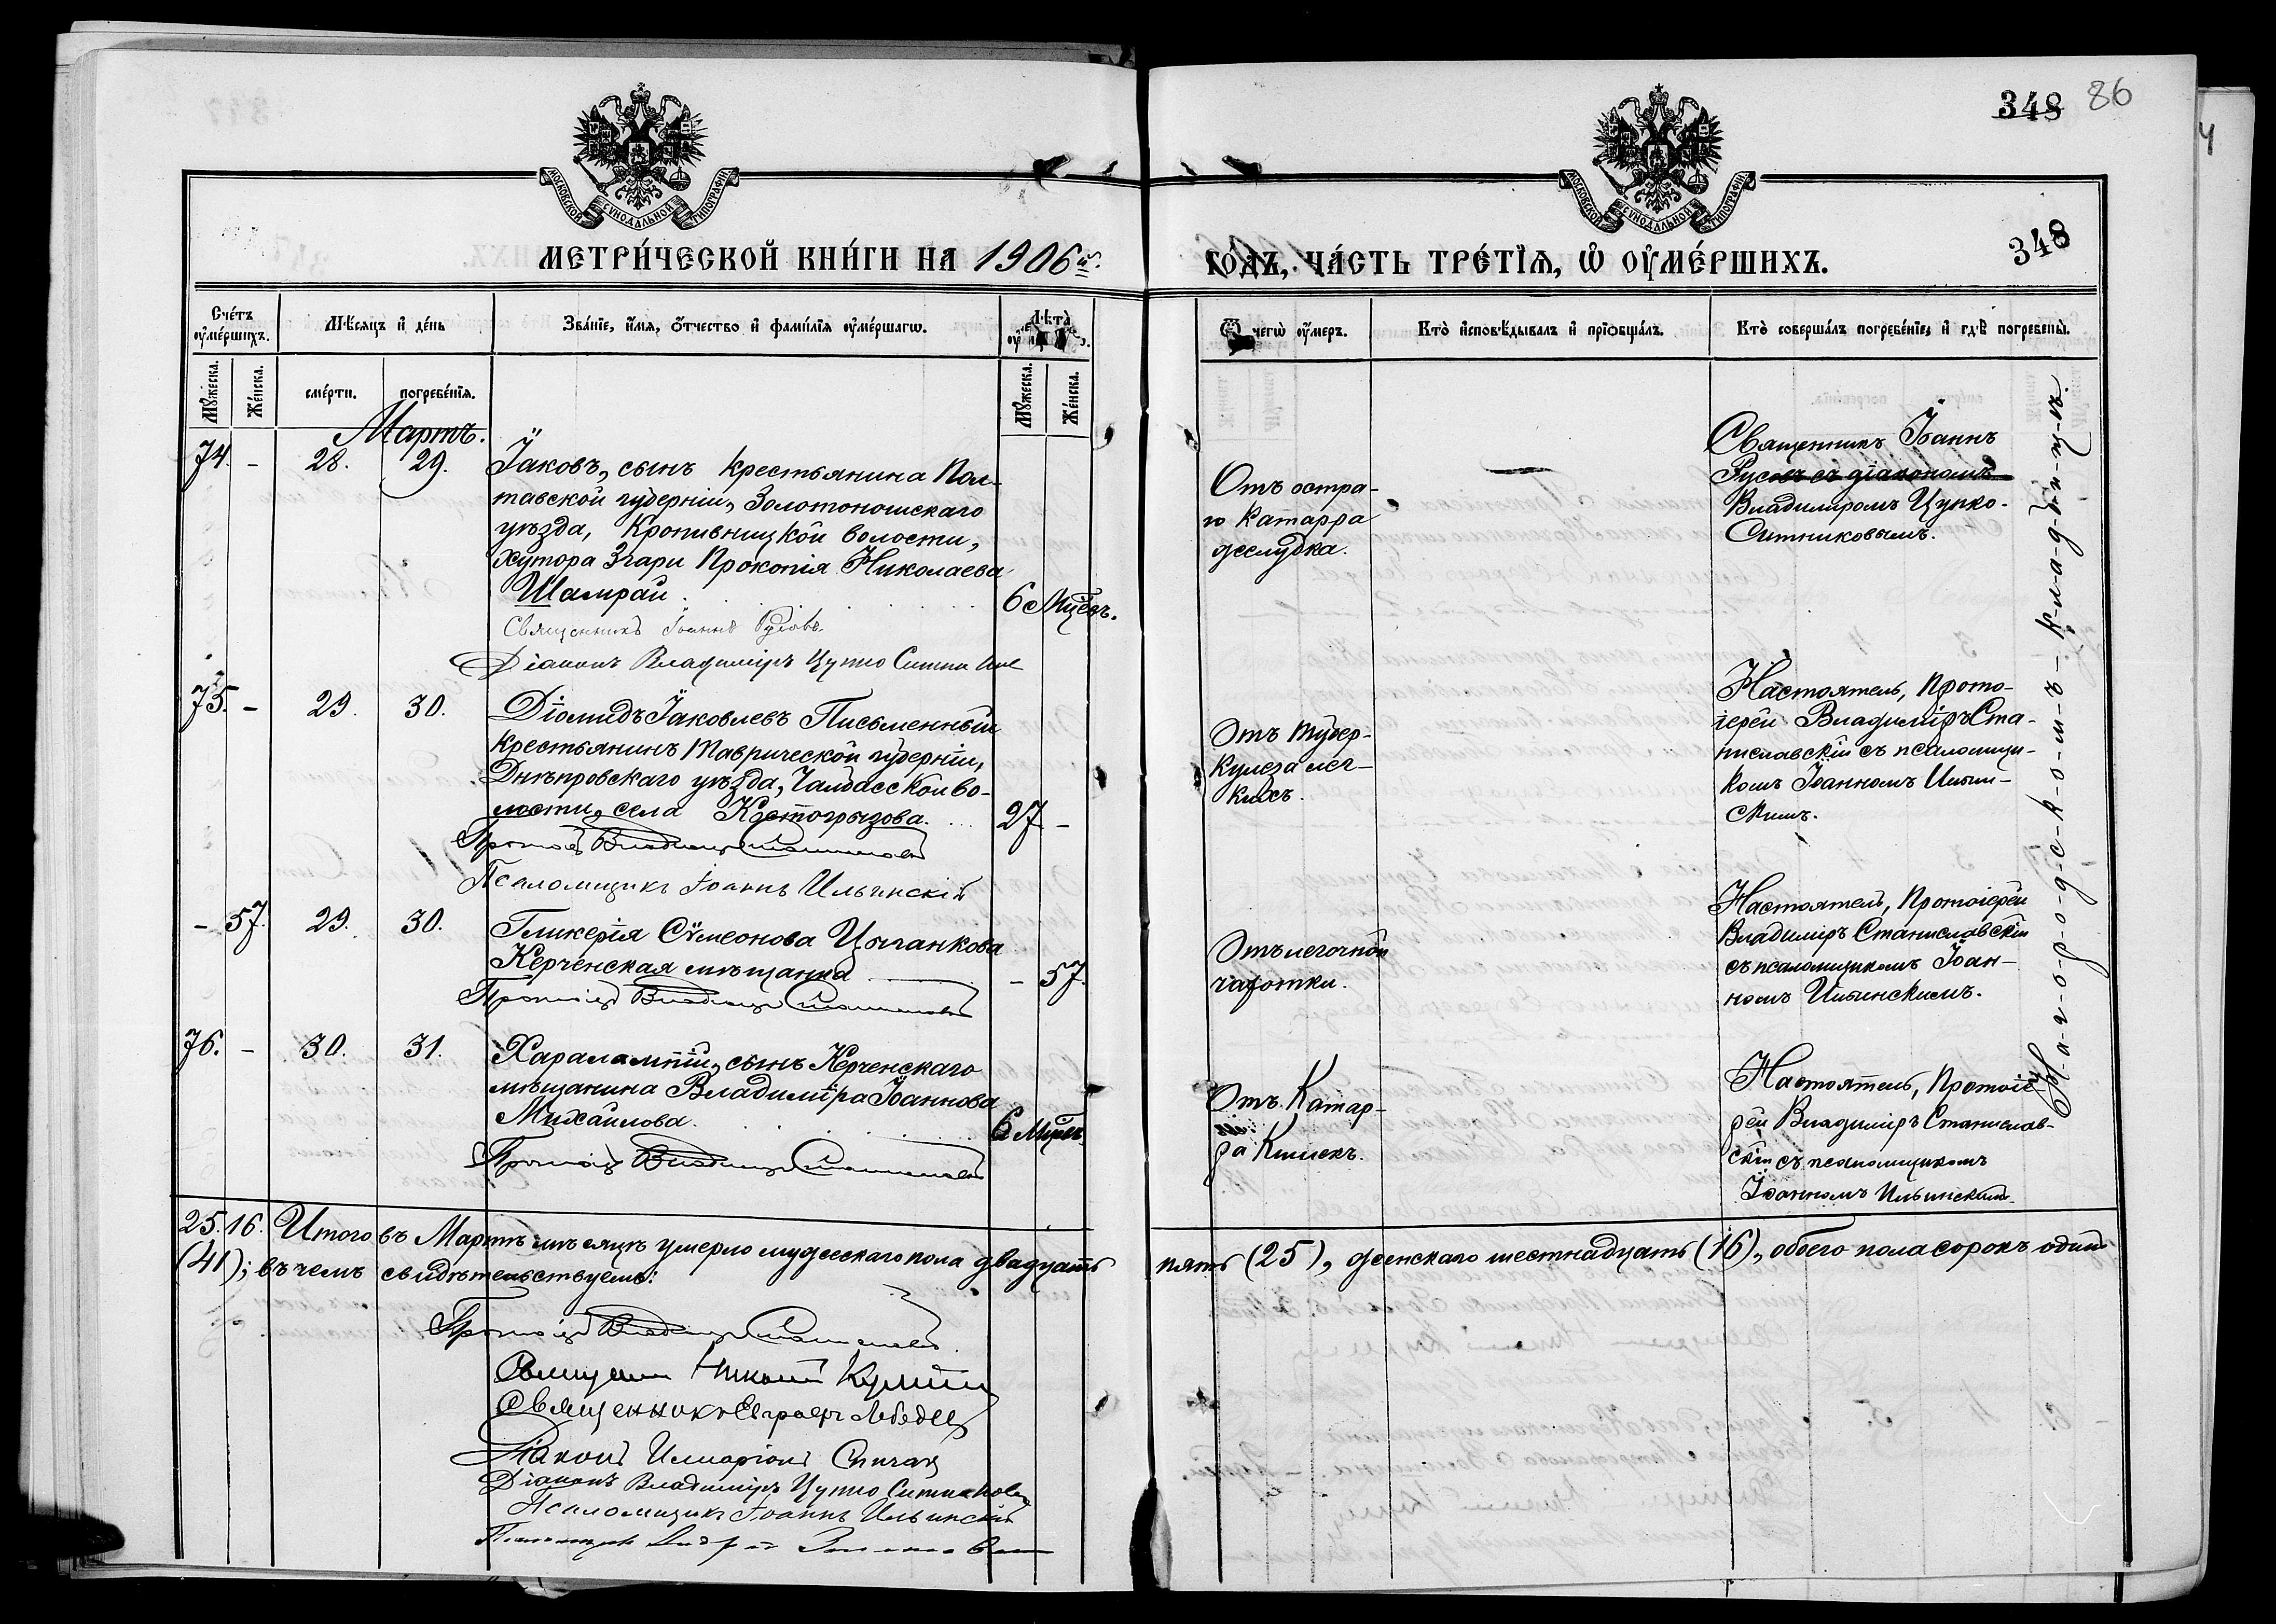 348 86
МОСКОВСКОЙ СУНОДАЛЬНОЙ ТИПОГРАФІИ
МОСКОВСКОЙ СУНОДАЛЬНОЙ ТИПОГРАФІИ
МЕТРИ́ЧЕСКОЙ КНИ́ГИ НА 1906й.
ГО́ДЪ, ЧА́СТЬ ТРЕ́ТІѦ, Ѡ ОУМЕ́РШИХЪ.
348
Сче́тъ оумершихъ.
Мѣсяцъ и де́нь
Зва́ніе, и́мя, о́тчество и фами́лія оуме́ршагѡ.
Лѣта
Мужеска.
Же́нска.
сме́рти.
погребе́нія.
Мужеска.
Же́нска.
чегѡ оумеръ.
Кто̀ исповѣ́дывалъ и пріобща́лъ.
Кто̀ соверша́лъ погребе́ніе, и гдѣ̀ погребены̀.
Мартъ.
74. - 28. 29.
Іаковъ, сынъ крестьянина Пол-
тавской губерніи, Золотоношскаго
уѣзда, Кропивницкой волости,
хутора Згари Прокопія Николаева
Шамрай. 6 Мѣсъ.
Священникъ Іоаннъ Русовъ
Діаконъ Владиміръ Цупко Ситни
Отъ остра-
го катарра
желудка.
—
Священникъ Іоаннъ
Русовъ съ діакономъ
Владиміромъ Цупко-
Ситниковымъ.
75. - 29. 30.
Діомидъ Іаковлевъ Письменный
крестьянинъ Таврической губерніи,
Днѣпровскаго уѣзда, Чалбасской во-
лости, села Костогрызова. 27 -
Протоіер Владиміръ Станиславск
Псаломщикъ Іоаннъ Ильинскій
Отъ тубер-
кулеза лег-
кихъ.
Настоятель, Прото-
іерей Владиміръ Ста-
ниславскій съ псаломщи-
комъ Іоанномъ Ильин-
скимъ.
- 57. 29. 30.
Гликерія Сѵмеонова Цыганкова
Керченская мѣщанка - 57.
Протоіер Владиміръ Станиславск
Отъ легочной
чахотки.
Настоятель, Протоіерей
Владиміръ Станиславскій
съ псаломщикомъ Іоан-
номъ Ильинскимъ.
76. - 30. 31.
Харалампій, сынъ Керченскаго
мѣщанина Владиміра Іоаннова
Михайлова. 6 Мѣс.
Протоіер Владиміръ Станиславск
Отъ Катар-
ра Кишекъ.
Настоятель, Протоіе-
рей Владиміръ Станислав-
скій съ псаломщикомъ
Іоанномъ Ильинскимъ
На-г-о-р-о-д-с-к-о-м-ъ-к-л-а-д-б-и-щ-ѣ.
25. 16. Итого въ Мартѣ мѣсяцѣ умерло мужескаго пола двадцать пять (25), женскаго шестнадцать (16), обоего пола сорокъ одинъ
(41); въ чемъ свидѣтельствуемъ:
Протоіер Владиміръ Станиславск
Священникъ Николай
Священникъ Евграфъ Лебедев
Діаконъ Илларіонъ Спичак
Діаконъ Владиміръ Цупко Ситниковъ
Псаломщикъ Іоаннъ Ильинскій
Псаломщикъ Андрей